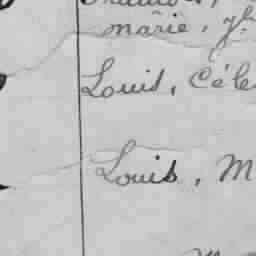 marie, y
Louis, Céle
Louis, M